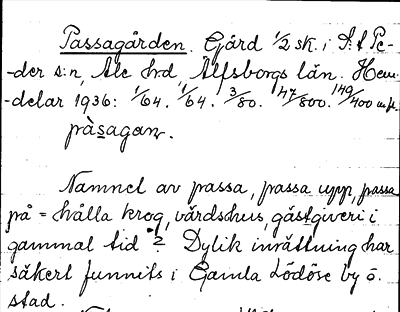 Passagården. Gård 1/2 sk. i S:t Pe-
-der s:n, Ale hd, Älfsborgs län. Hem-
-delar 1936: 1/64. 1/64. 3/80. 147/800. 149/400 mtl.
pàsagaɳ.
Namnet av passa, passa upp, passa
på = hålla krog, värdshus, gästgiveri i
gammal tid? Dylik inrättning har
säkert funnits i Gamla Lödöse by o.
stad.